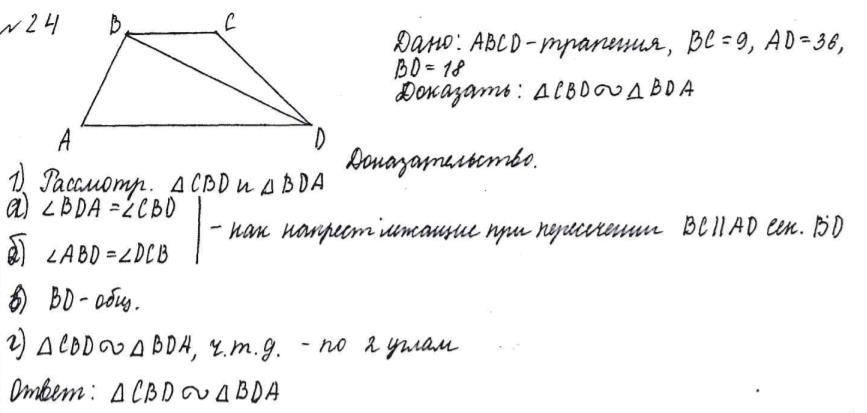 № 24
B C
A D
Дано: ABCD - трапеция, BC = 9, AD = 36,
BD = 18
Доказать: △CBD ∾ △BDA
Доказательство.
1) Рассмотр. △CBD и △BDA
а) ∠BDA = ∠CBD
б) ∠ABD = ∠DCB
- как накрест лежащие при пересечении BC || AD сек. BD
в) BD - общ.
г) △CBD ∾ △BDA, ч.т.д. - по 2 углам
Ответ: △CBD ∾ △BDA